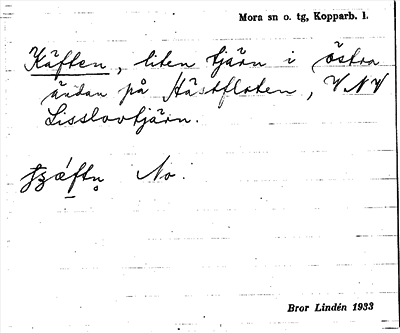 Mora sn o. tg, Kopparb. l.
Käften, liten tjärn i östra
ändan på Hästfloten, VNV
Lisslovtjärn.
No.
Bror Lindén 1933